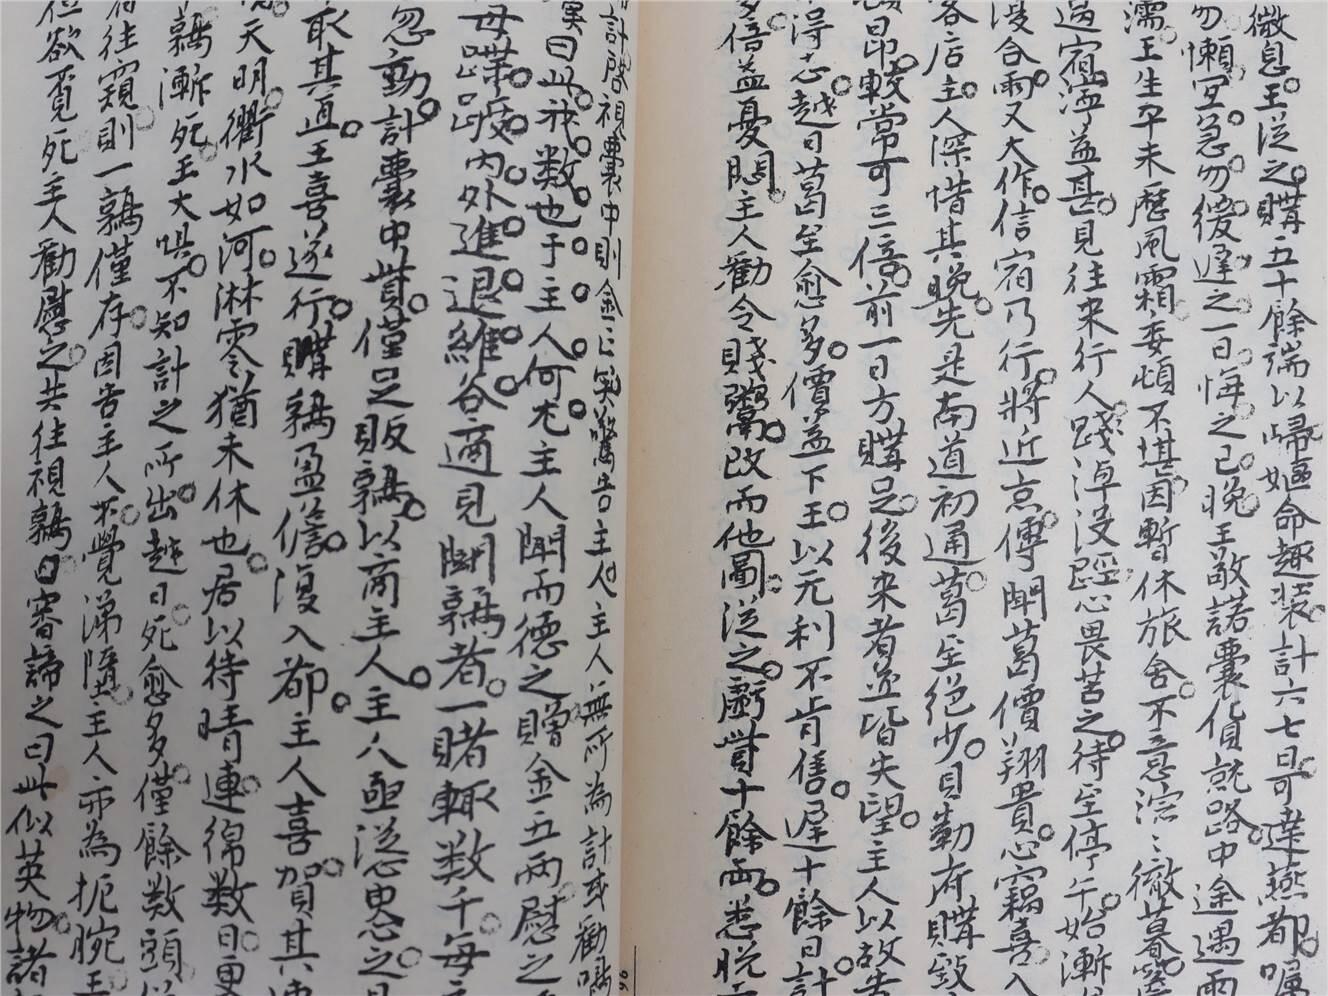 微息。王從之。購五十餘端以歸。嫗命趣裝。計六七日可達燕都。囑
勿懶。宜急。勿緩。遲之一日。悔之已晚。王敬諾。囊貨就路。中途遇雨
濡。王生平未歷風霜。委頓不堪。因暫休旅舍。不意淙淙徹暮。
過宿。濘益甚。見往來行人踐淖沒脛。心畏苦之。待至停午。始漸
復合。雨又大作。信宿乃行。將近京。傳聞葛價翔貴。心竊喜。入
客店。主人深惜其晚。先是南道初通。葛至絕少。貝勒府購致
頓昂。較常可三倍。前一日方購足。後來者並皆失望。主人以故告
得志。越日葛至愈多。價益下。王以元利不肯售。遲十餘日。計
多。倍益憂悶。主人勸令賤鬻。改而他圖。從之。虧貲十餘兩。悉脫
計啓視囊中。則金亡矣。驚告主人。主人無所為計。或勸鳴
嘆曰。此我數也。于主人何尤。主人聞而德之。贈金五兩慰之
母。蹀踱內外。進退維谷。適見鬬鶉者。一賭輒數千。每
忽動。計囊中貲。僅足販鶉。以商主人。主人亟慫恿之
取其直。王喜。遂行。購鶉盈儋。復入都。主人喜。賀其
天明。衢水如河。淋零猶未休也。居以待晴。連綿數日。更
鶉漸死。王大懼。不知計之所出。越日。死愈多。僅餘數頭
往窺。則一鶉僅存。因告主人。不覺涕墮。主人亦為扼腕。王
位欲覓死。主人勸慰之。共往視鶉。審諦之曰。此似英物。諸